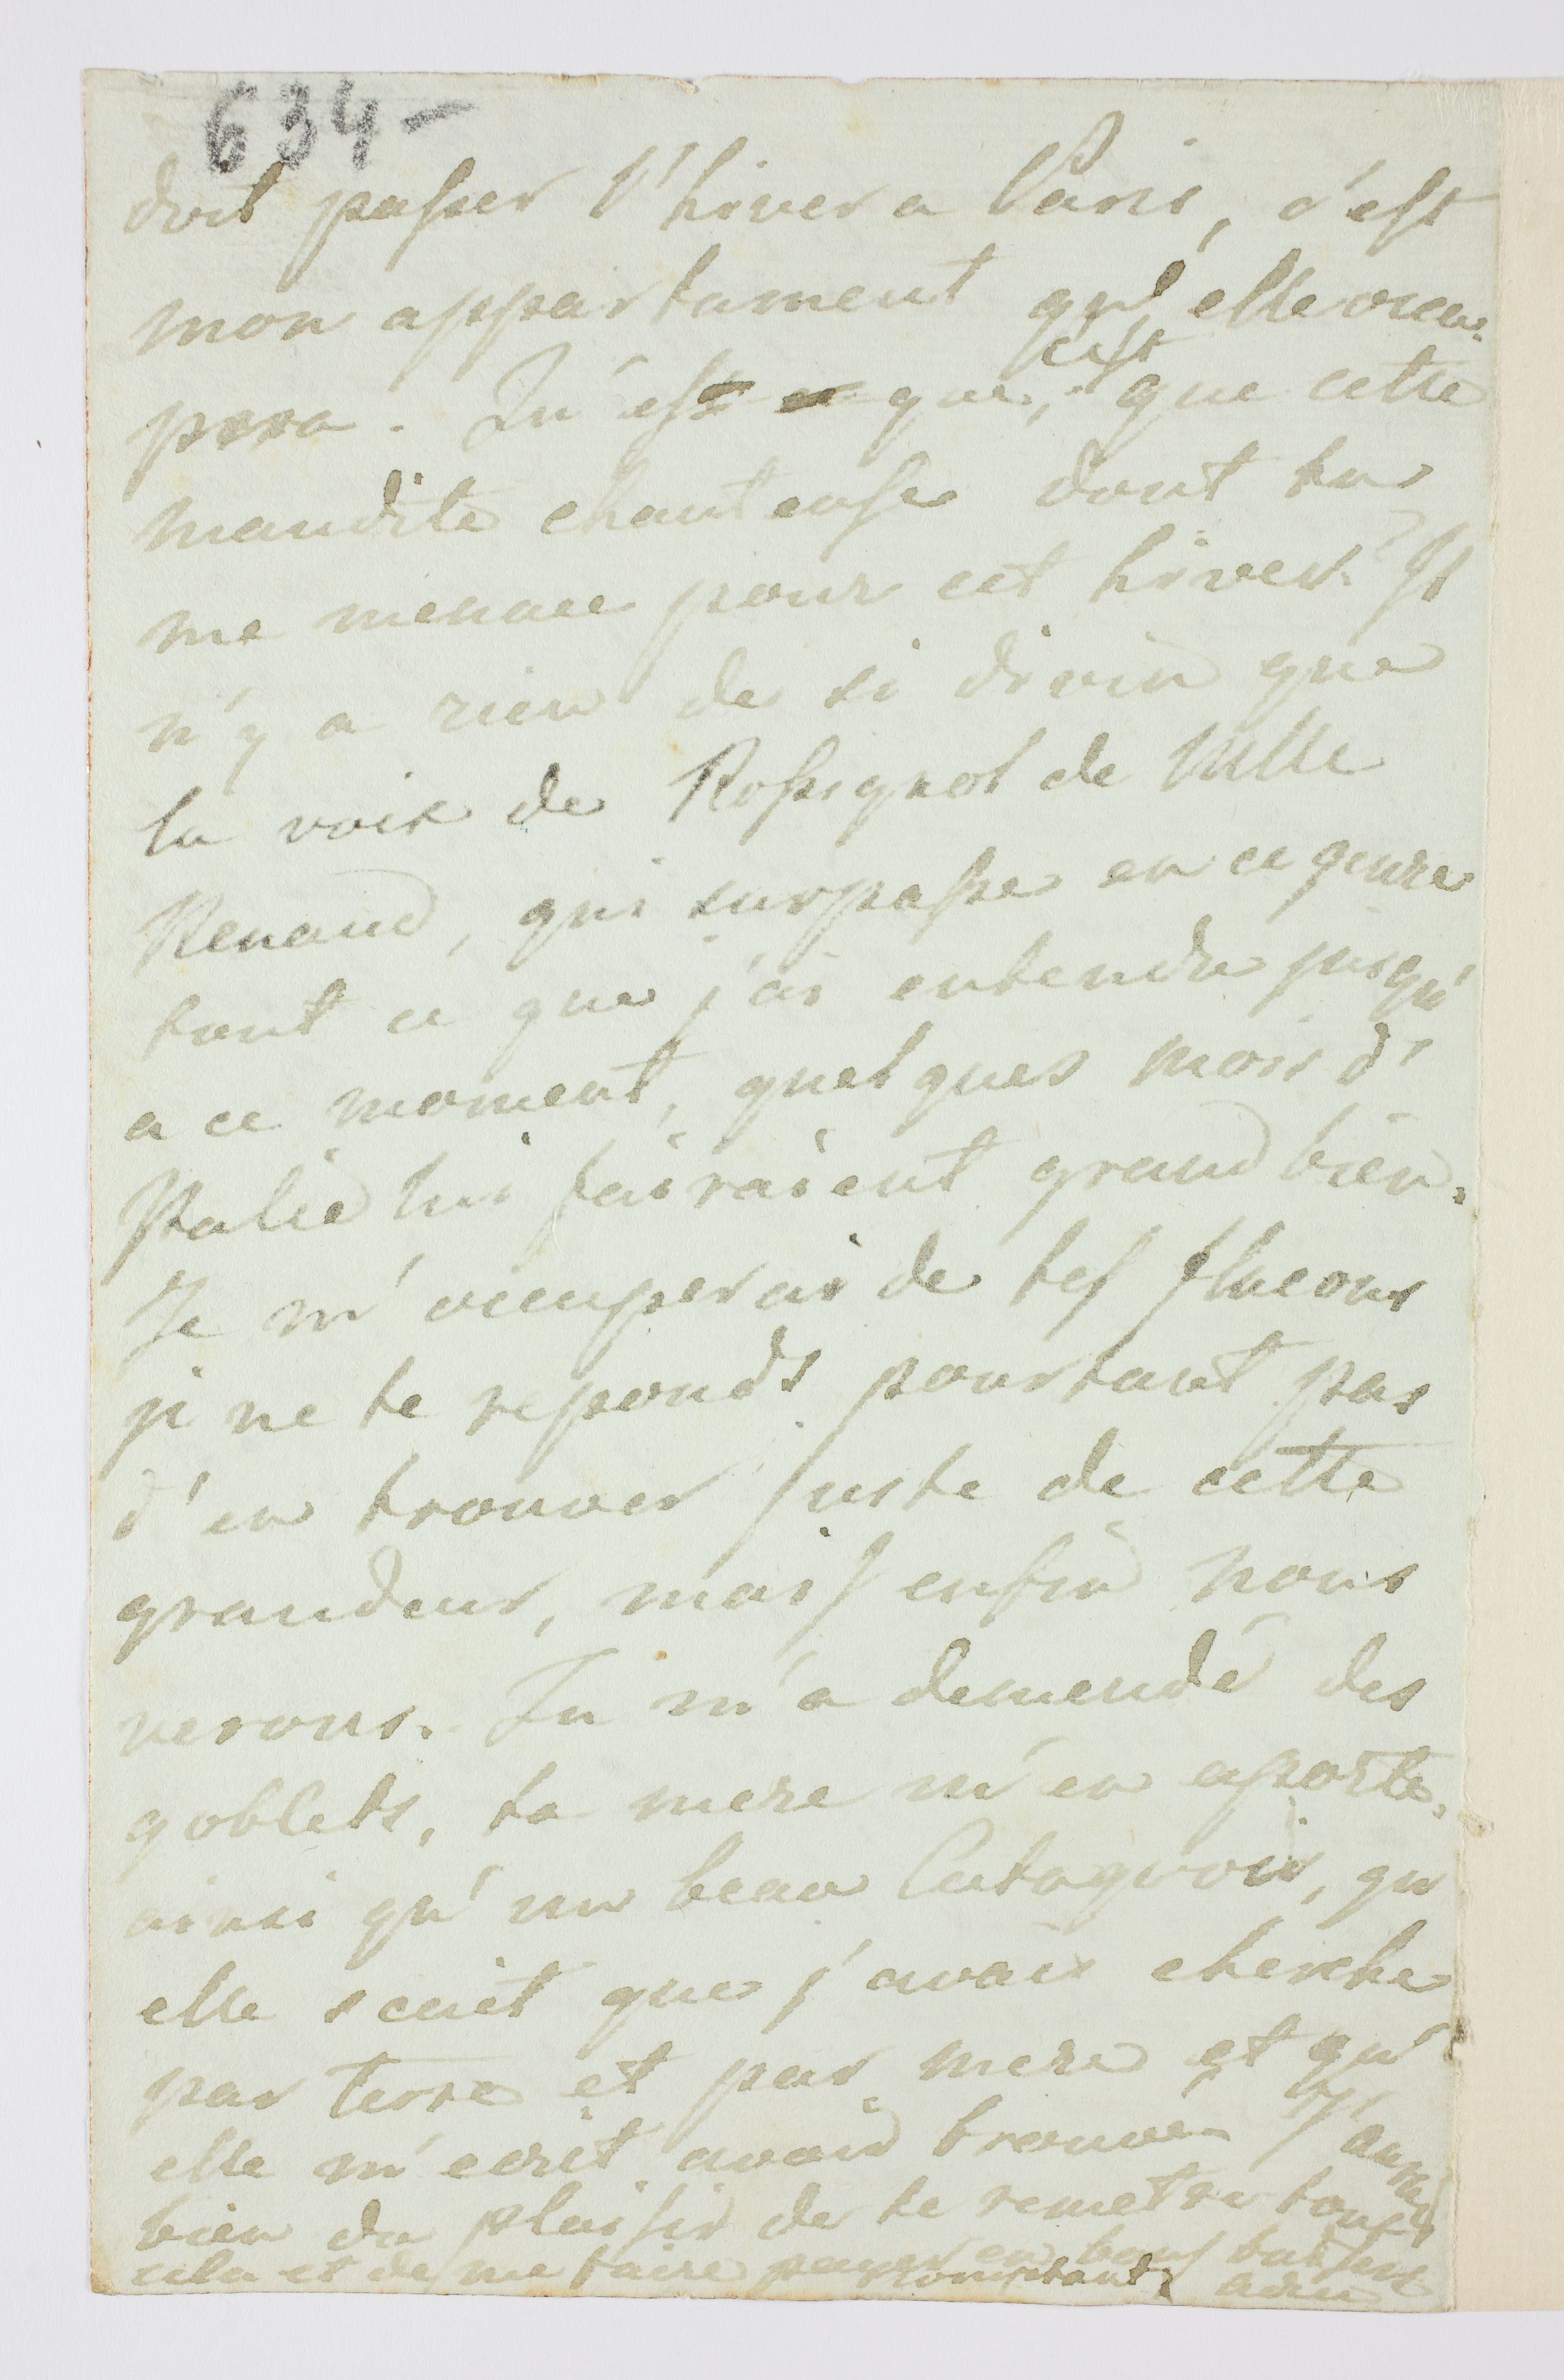 634 -
doit passer l'hiver a Paris, c'est
mon appartament qu'elle occu-
pera. Qu'est que, c'est que cette
maudite chanteuse dont tu
me menace pour cet hiver? Il
n'y a rien de si divin que
la voix de Rossignol de Mlle
Renaud, qui surpasse en ce genre
tout ce que j'ai entendu jusqu'
a ce moment, quelques mois d'
Italie lui fairaient grand bien.
Je m'occuperai de tes flacons
je ne te reponds pourtant pas
d'en trouver juste de cette
grandeur, mais enfin nous
verons. Tu m'a demendé des
goblets, ta mere m'en aporte,
ainsi qu'un beau, qu
elle scait que j'avais cherche
par terre et par mere et qu'
elle m'ecrit avoir trouvé. J'aurai
bien du plaisir de te remetre tout
cela et de me faire payer en bons baisers
comptants adieu